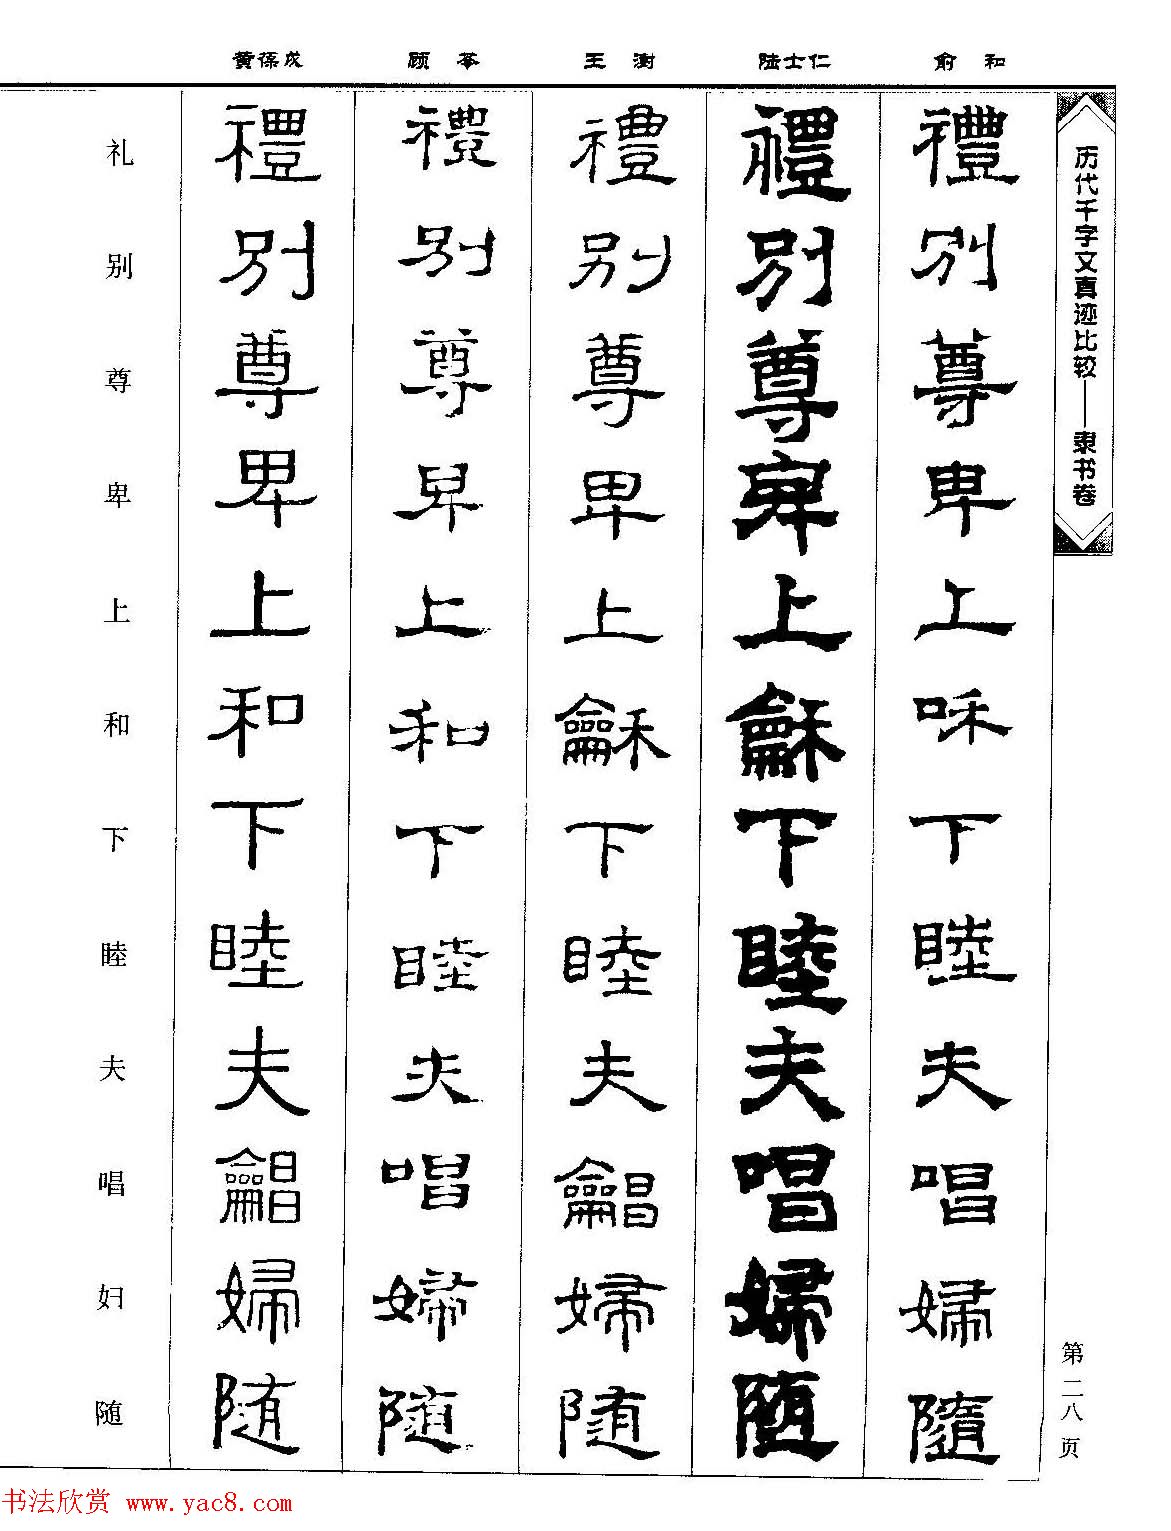 俞和
陆士仁
王澍
顾苓
黄葆戉
历代千字文真迹比较——隶书卷
第二八页
禮別尊卑上和下睦夫唱婦隨
禮別尊卑上龢下睦夫唱婦随
禮別尊卑上龢下睦夫龠昌婦随
禮別尊卑上和下睦夫唱婦隨
禮別尊卑上和下睦夫龠昌婦随
礼别尊卑上和下睦夫唱妇随
书法欣赏 www.yac8.com